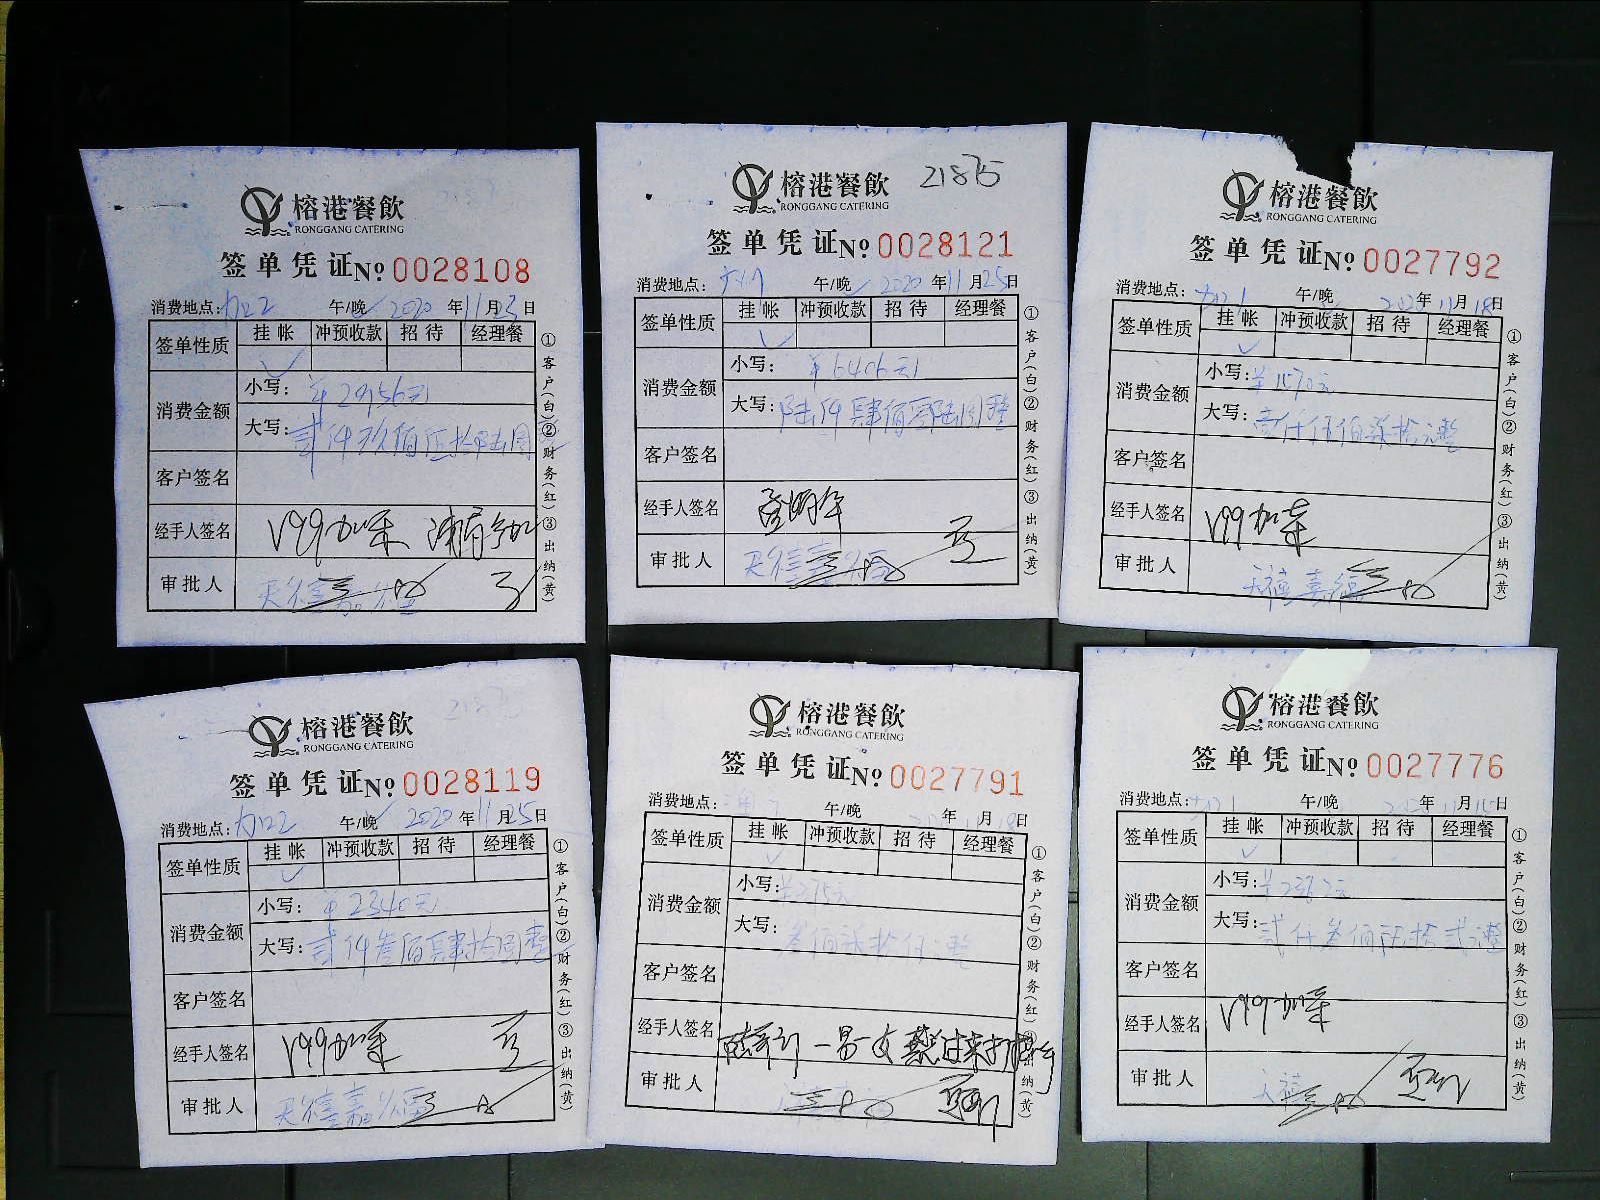 榕港餐飲
RONGGANG CATERING
签单凭证№ 0028108
消费地点: 午/晚 2020 年 11 月 23 日
签单性质 挂帐 冲预收款 招待 经理餐
消费金额
小写: ¥2956元
大写: 贰仟玖佰伍拾陆圆
客户签名
经手人签名 V99加菜
审批人
①客户(白)②财务(红)③出纳(黄)
21875
榕港餐飲
RONGGANG CATERING
签单凭证№ 0028121
消费地点: 午/晚 2020 年 11 月 25 日
签单性质 挂帐 冲预收款 招待 经理餐
消费金额
小写: ¥6406元
大写: 陆仟肆佰零陆圆整
客户签名
经手人签名
审批人
①客户(白)②财务(红)③出纳(黄)
榕港餐飲
RONGGANG CATERING
签单凭证№ 0027792
消费地点: 午/晚 2020 年 11 月 18 日
签单性质 挂帐 冲预收款 招待 经理餐
消费金额
小写: ¥1570元
大写: 壹仟伍佰柒拾元整
客户签名
经手人签名 V99加菜
审批人
①客户(白)②财务(红)③出纳(黄)
榕港餐飲
RONGGANG CATERING
签单凭证№ 0028119
消费地点: 午/晚 2020 年 11 月 25 日
签单性质 挂帐 冲预收款 招待 经理餐
消费金额
小写: ¥2340元
大写: 贰仟叁佰肆拾圆整
客户签名
经手人签名 V99加菜
审批人
①客户(白)②财务(红)③出纳(黄)
榕港餐飲
RONGGANG CATERING
签单凭证№ 0027791
消费地点: 午/晚 年 月 日
签单性质 挂帐 冲预收款 招待 经理餐
消费金额
小写:
大写:
客户签名
经手人签名
审批人
①客户(白)②财务(红)③出纳(黄)
榕港餐飲
RONGGANG CATERING
签单凭证№ 0027776
消费地点: 午/晚 年 11 月 日
签单性质 挂帐 冲预收款 招待 经理餐
消费金额
小写:
大写:
客户签名
经手人签名 V99加菜
审批人
①客户(白)②财务(红)③出纳(黄)